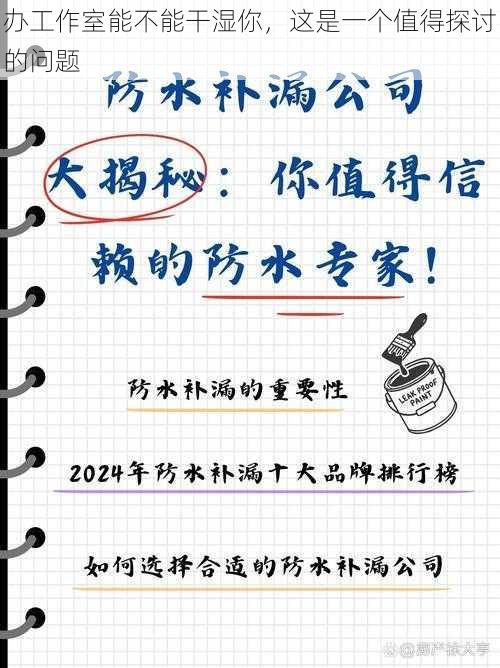 办工作室能不能干湿你，这是一个值得探讨
的问题
防水补漏公司
大揭秘：你值得信
赖的防水专家！
LEAK PROOF
PAINT
防水补漏的重要性
2024年防水补漏十大品牌排行榜
如何选择合适的防水补漏公司